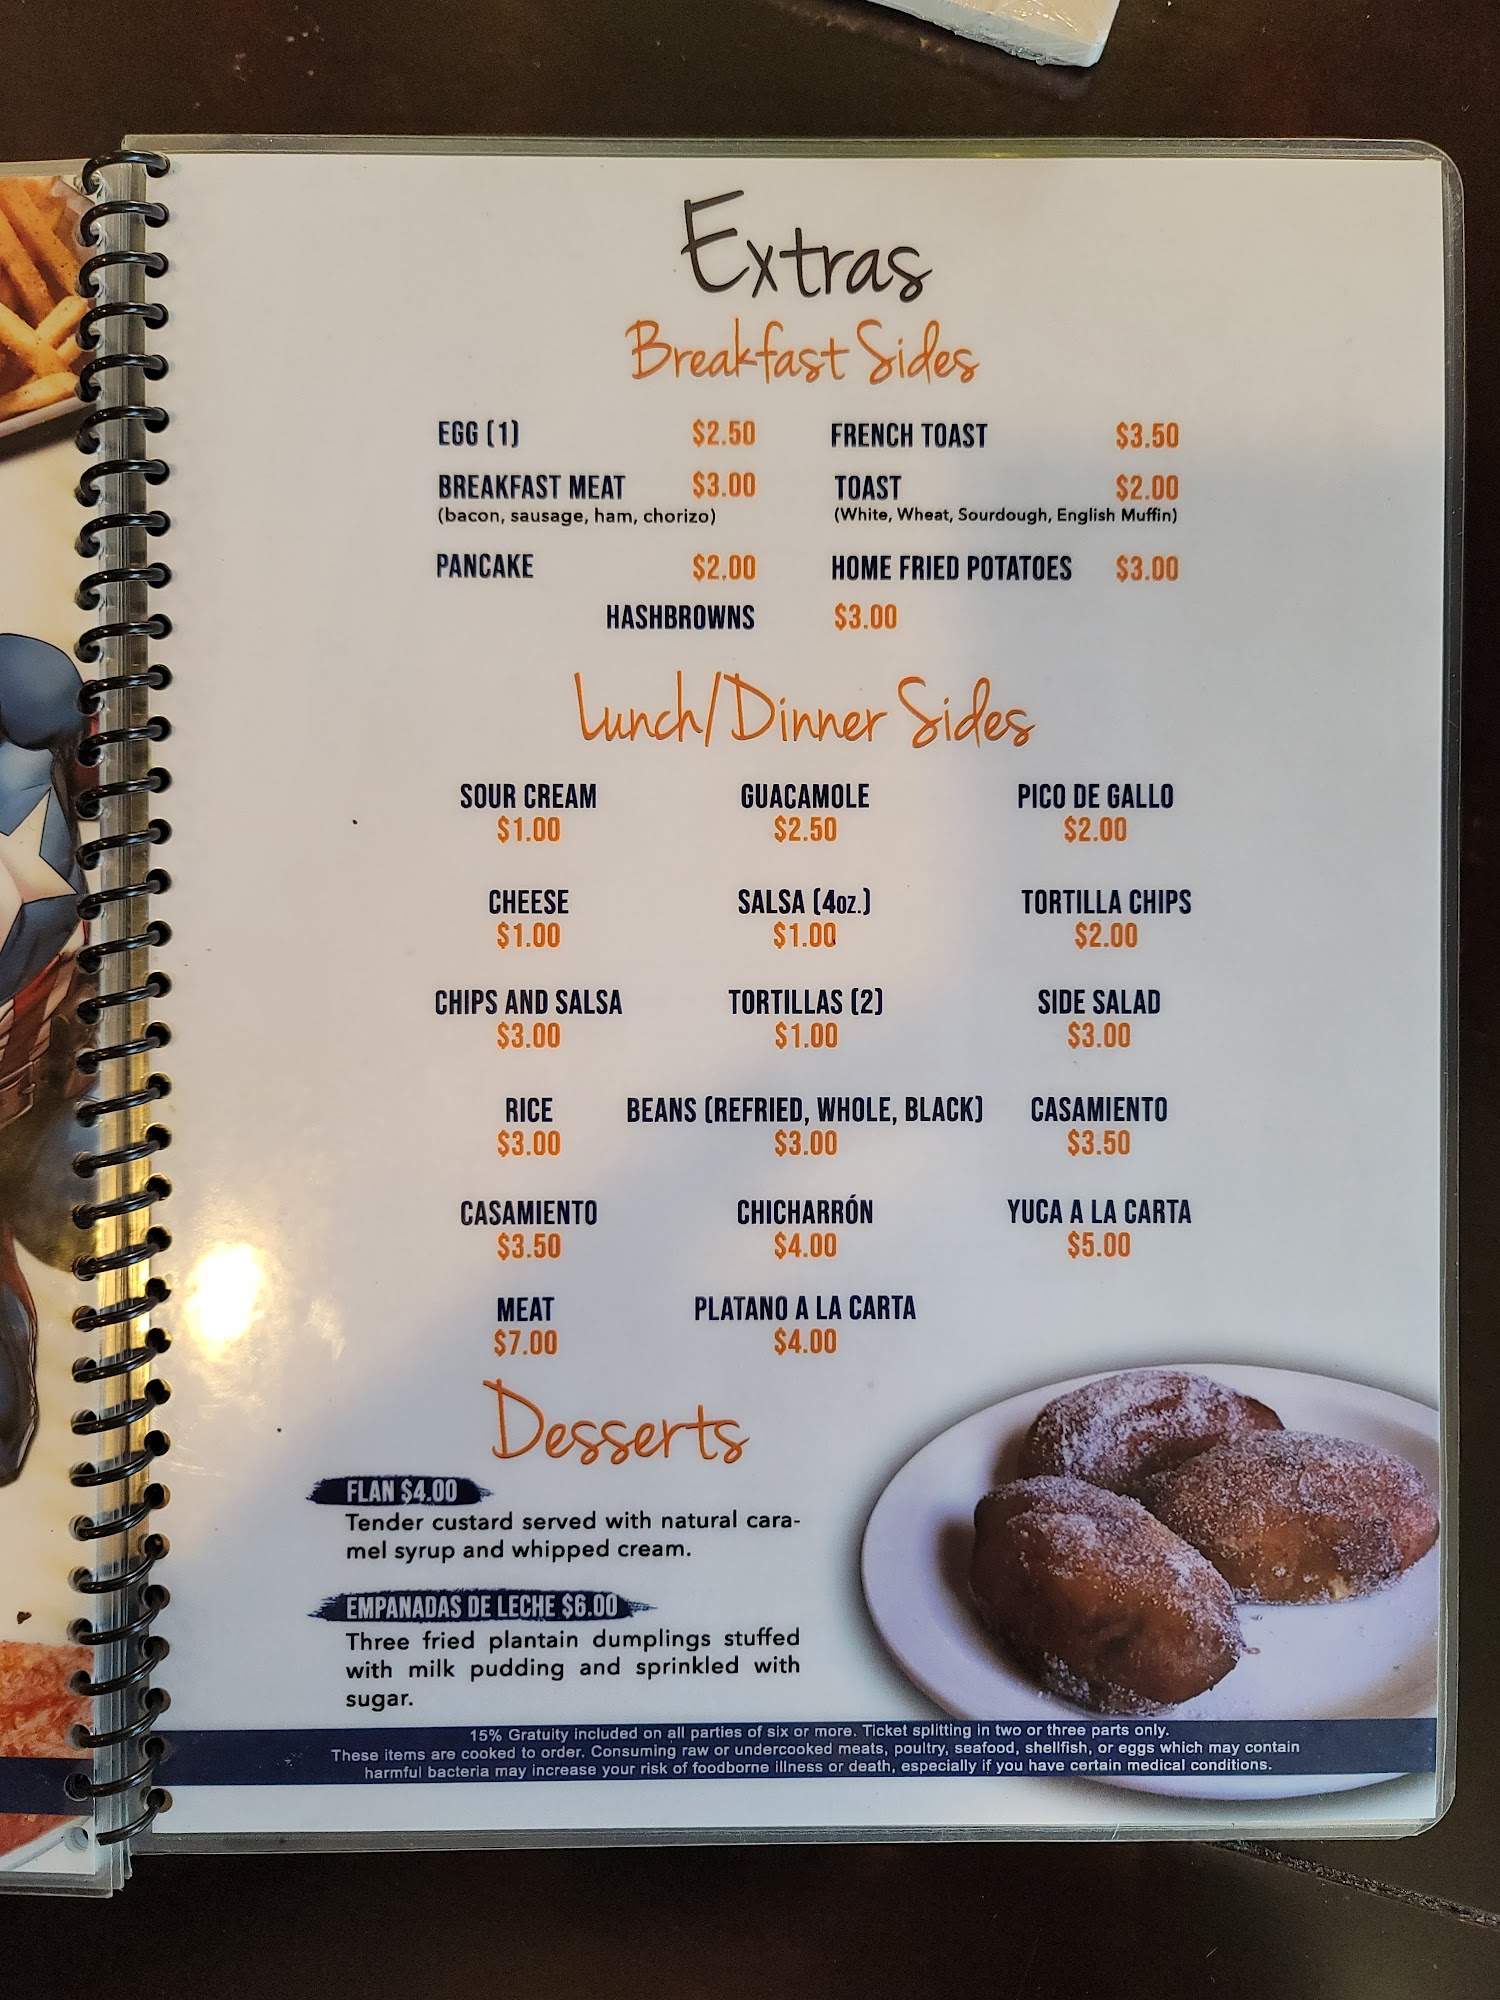 Extras
Breakfast Sides
EGG (1) $2.50 FRENCH TOAST $3.50
BREAKFAST MEAT $3.00 TOAST $2.00
(bacon, sausage, ham, chorizo) (White, Wheat, Sourdough, English Muffin)
PANCAKE $2.00 HOME FRIED POTATOES $3.00
HASHBROWNS $3.00
Lunch/Dinner Sides
SOUR CREAM GUACAMOLE PICO DE GALLO
$1.00 $2.50 $2.00
CHEESE SALSA (4oz.) TORTILLA CHIPS
$1.00 $1.00 $2.00
CHIPS AND SALSA TORTILLAS (2) SIDE SALAD
$3.00 $1.00 $3.00
RICE BEANS (REFRIED, WHOLE, BLACK) CASAMIENTO
$3.00 $3.00 $3.50
CASAMIENTO CHICHARRÓN YUCA A LA CARTA
$3.50 $4.00 $5.00
MEAT PLATANO A LA CARTA
$7.00 $4.00
Desserts
FLAN $4.00
Tender custard served with natural cara-
mel syrup and whipped cream.
EMPANADAS DE LECHE $6.00
Three fried plantain dumplings stuffed
with milk pudding and sprinkled with
sugar.
15% Gratuity included on all parties of six or more. Ticket splitting in two or three parts only.
These items are cooked to order. Consuming raw or undercooked meats, poultry, seafood, shellfish, or eggs which may contain
harmful bacteria may increase your risk of foodborne illness or death, especially if you have certain medical conditions.